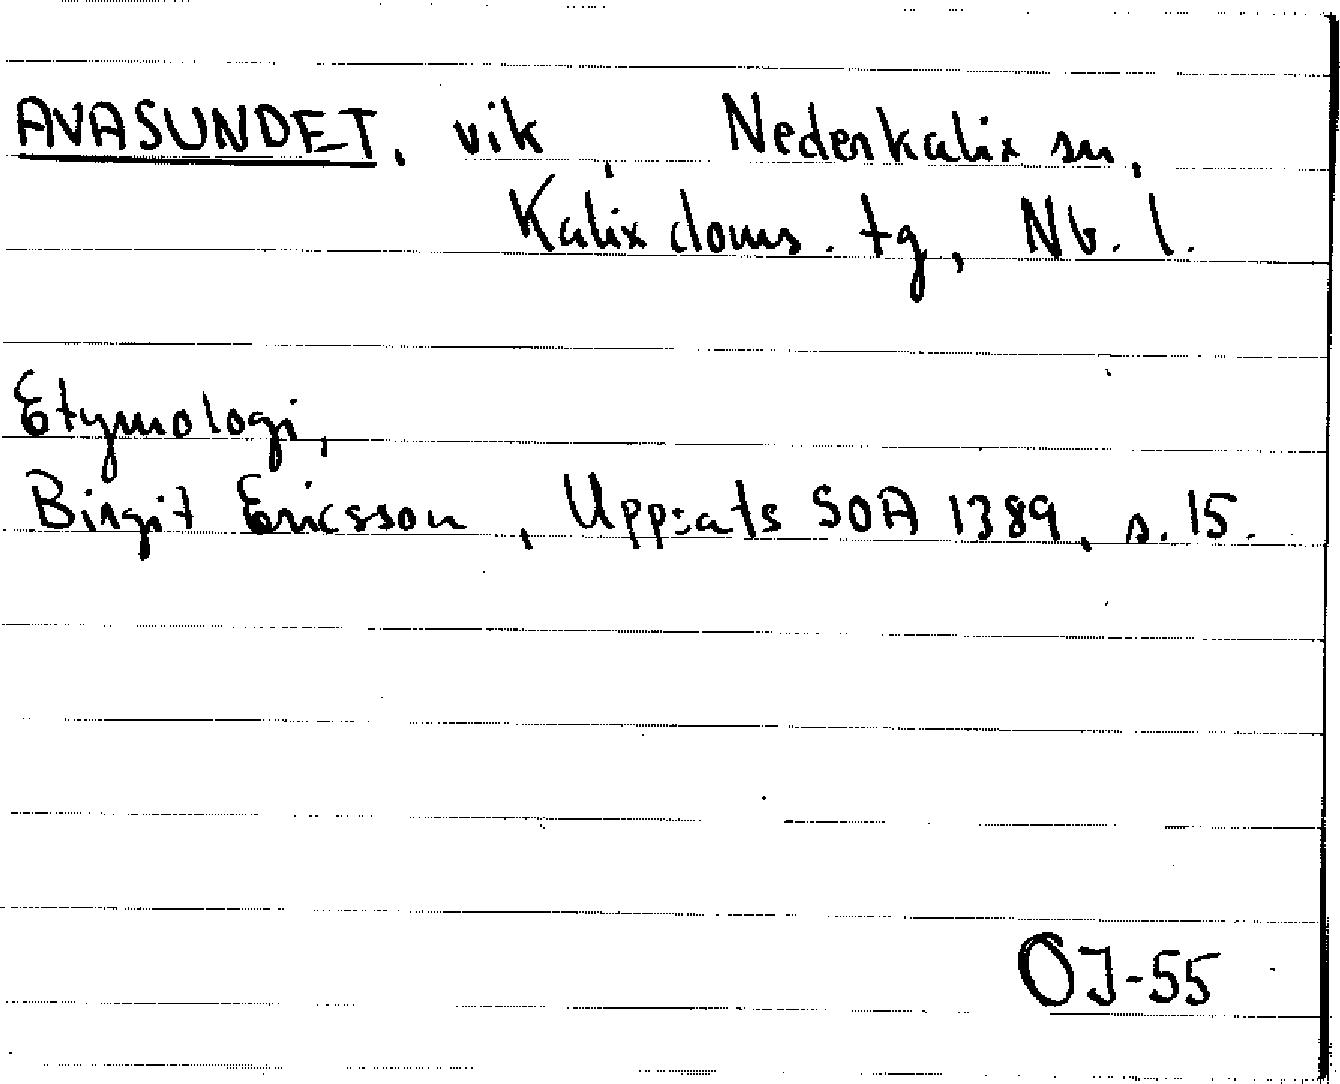 AVASUNDET, vik, Nederkalix sn,
Kalix doms. tg, Nb. l.
Etymologi,
Birgit Ericsson, Uppsats SOA 1389, s. 15.
OJ-55